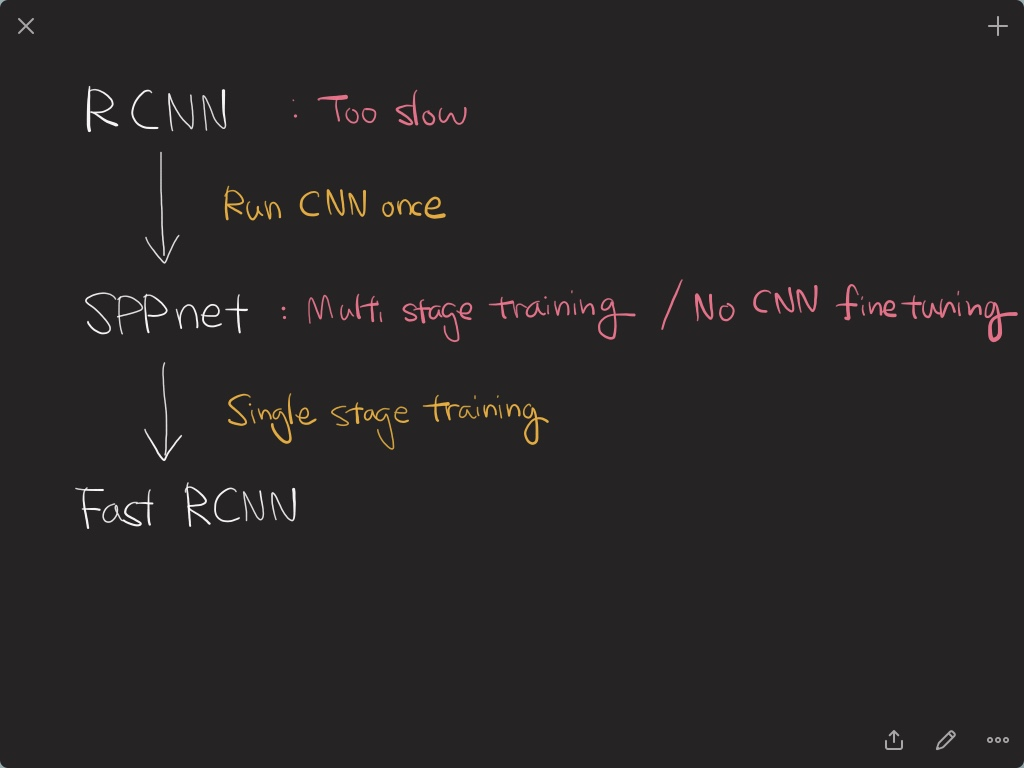 RCNN : Too slow
Run CNN once
SPPnet : Multi stage training / No CNN finetuning
Single stage training
Fast RCNN